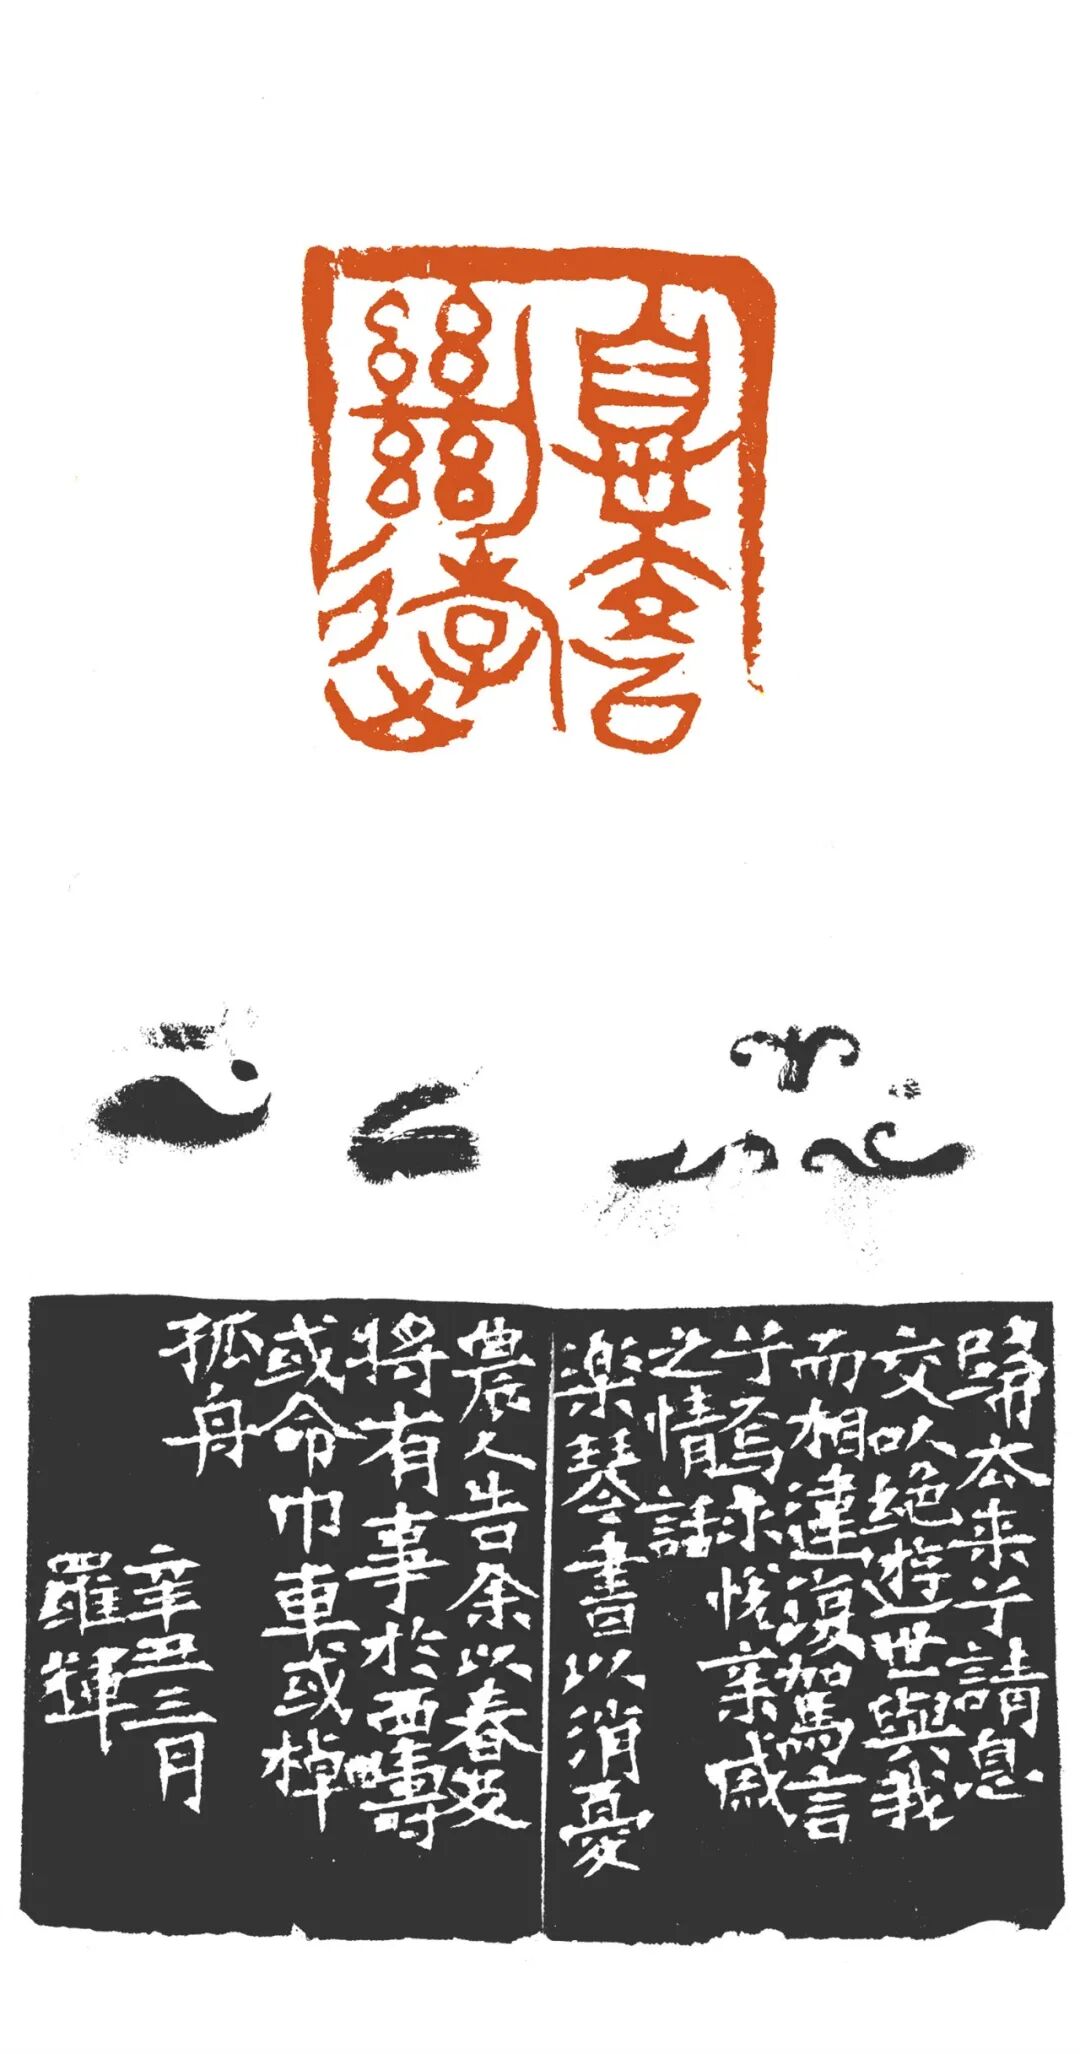 歸去来兮請息
交以绝遊世與我
而相違復駕言
兮焉求悅亲戚
之情話
楽琴書以消憂
農人告余以春及
將有事於西疇
或命巾車或棹
孤舟
辛丑三月
羅輝